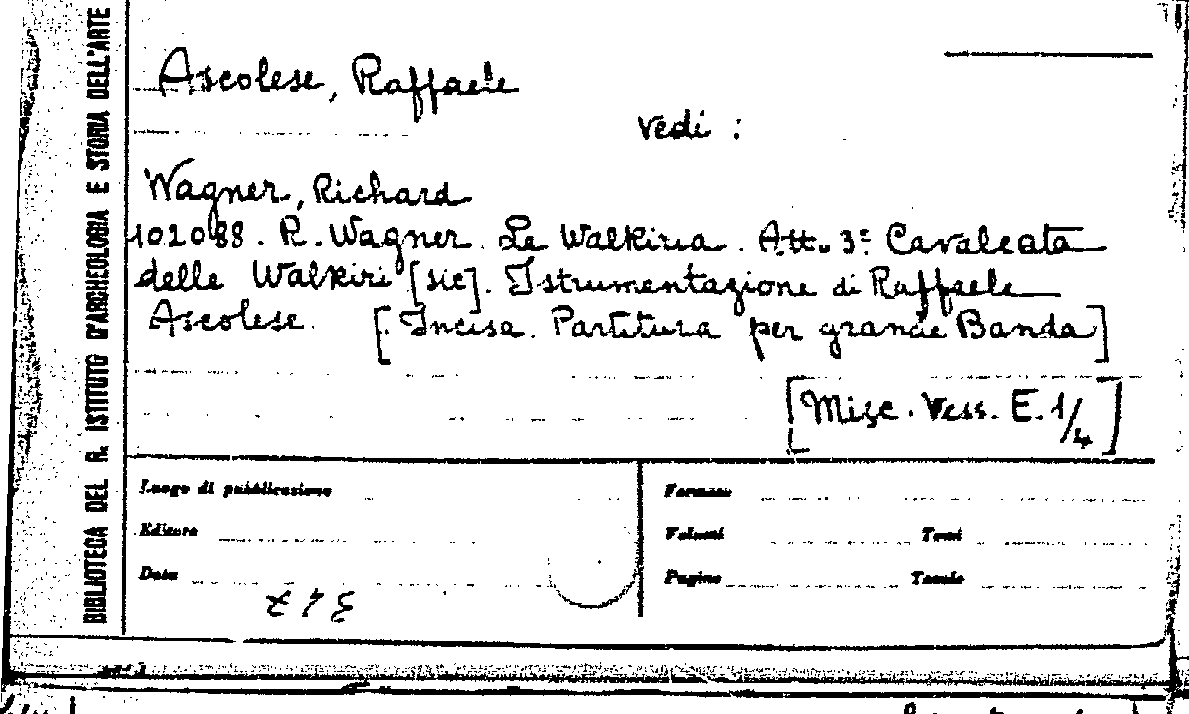 BIBLIOTECA DEL R. ISTITUTO D'ARCHEOLOGIA E STORIA DELL'ARTE
Ascolese, Raffaele
vedi :
Wagner, Richard
102088. R. Wagner. Le Walkiria. Att. 3º Cavalcata
delle Walkiri [sic]. Istrumentazione di Raffaele
Ascolese. [Incisa. Partitura per grande Banda]
[Misc. Vess. E. 1/4]
Luogo di pubblicazione
Formato
Editore
Volumi Tomi
Data
Pagine Tavole